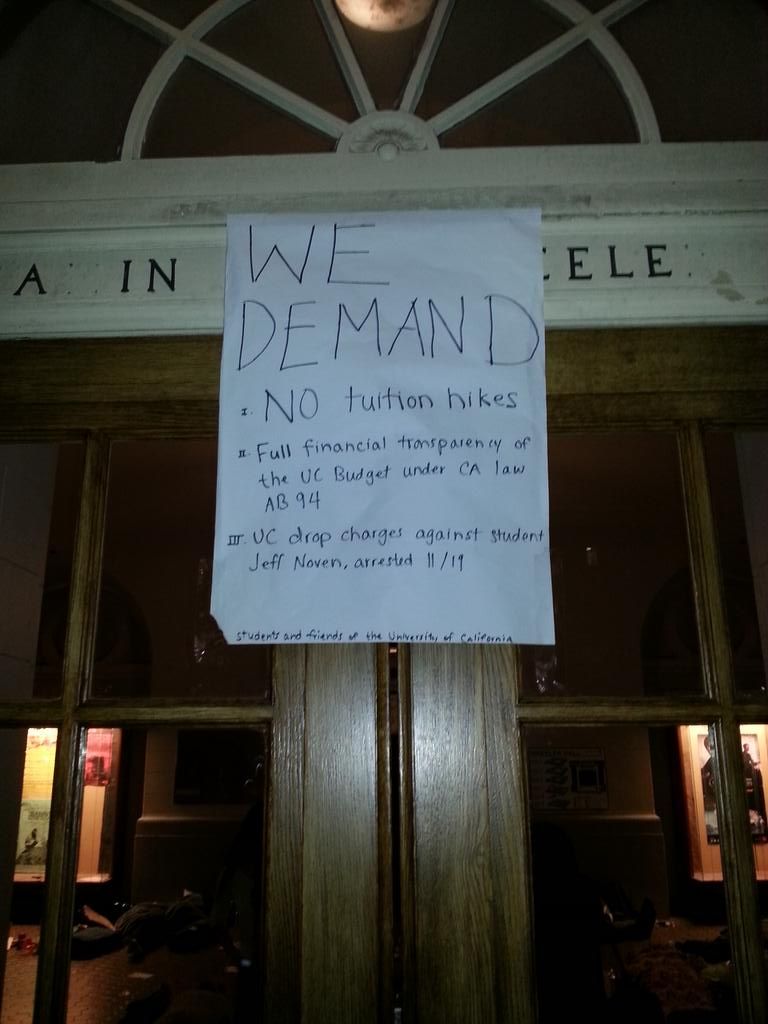 WE
DEMAND
A IN
ELE
I. NO tuition hikes
II. Full financial transparency of
the UC Budget under CA law
AB 94
III. UC drop charges against student
Jeff Noven, arrested 11/19
students and friends of the University of California